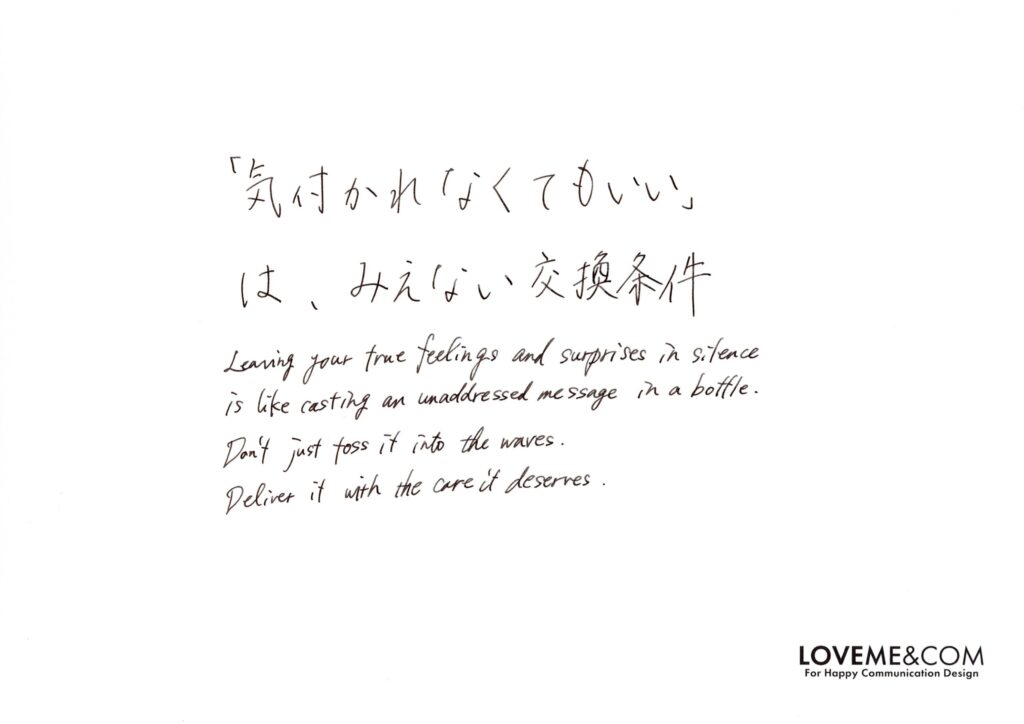 「気付かれなくてもいい」
は、みえない交換条件
Leaving your true feelings and surprises in silence
is like casting an unaddressed message in a bottle.
Don't just toss it into the waves.
Deliver it with the care it deserves.
LOVEME&COM
For Happy Communication Design